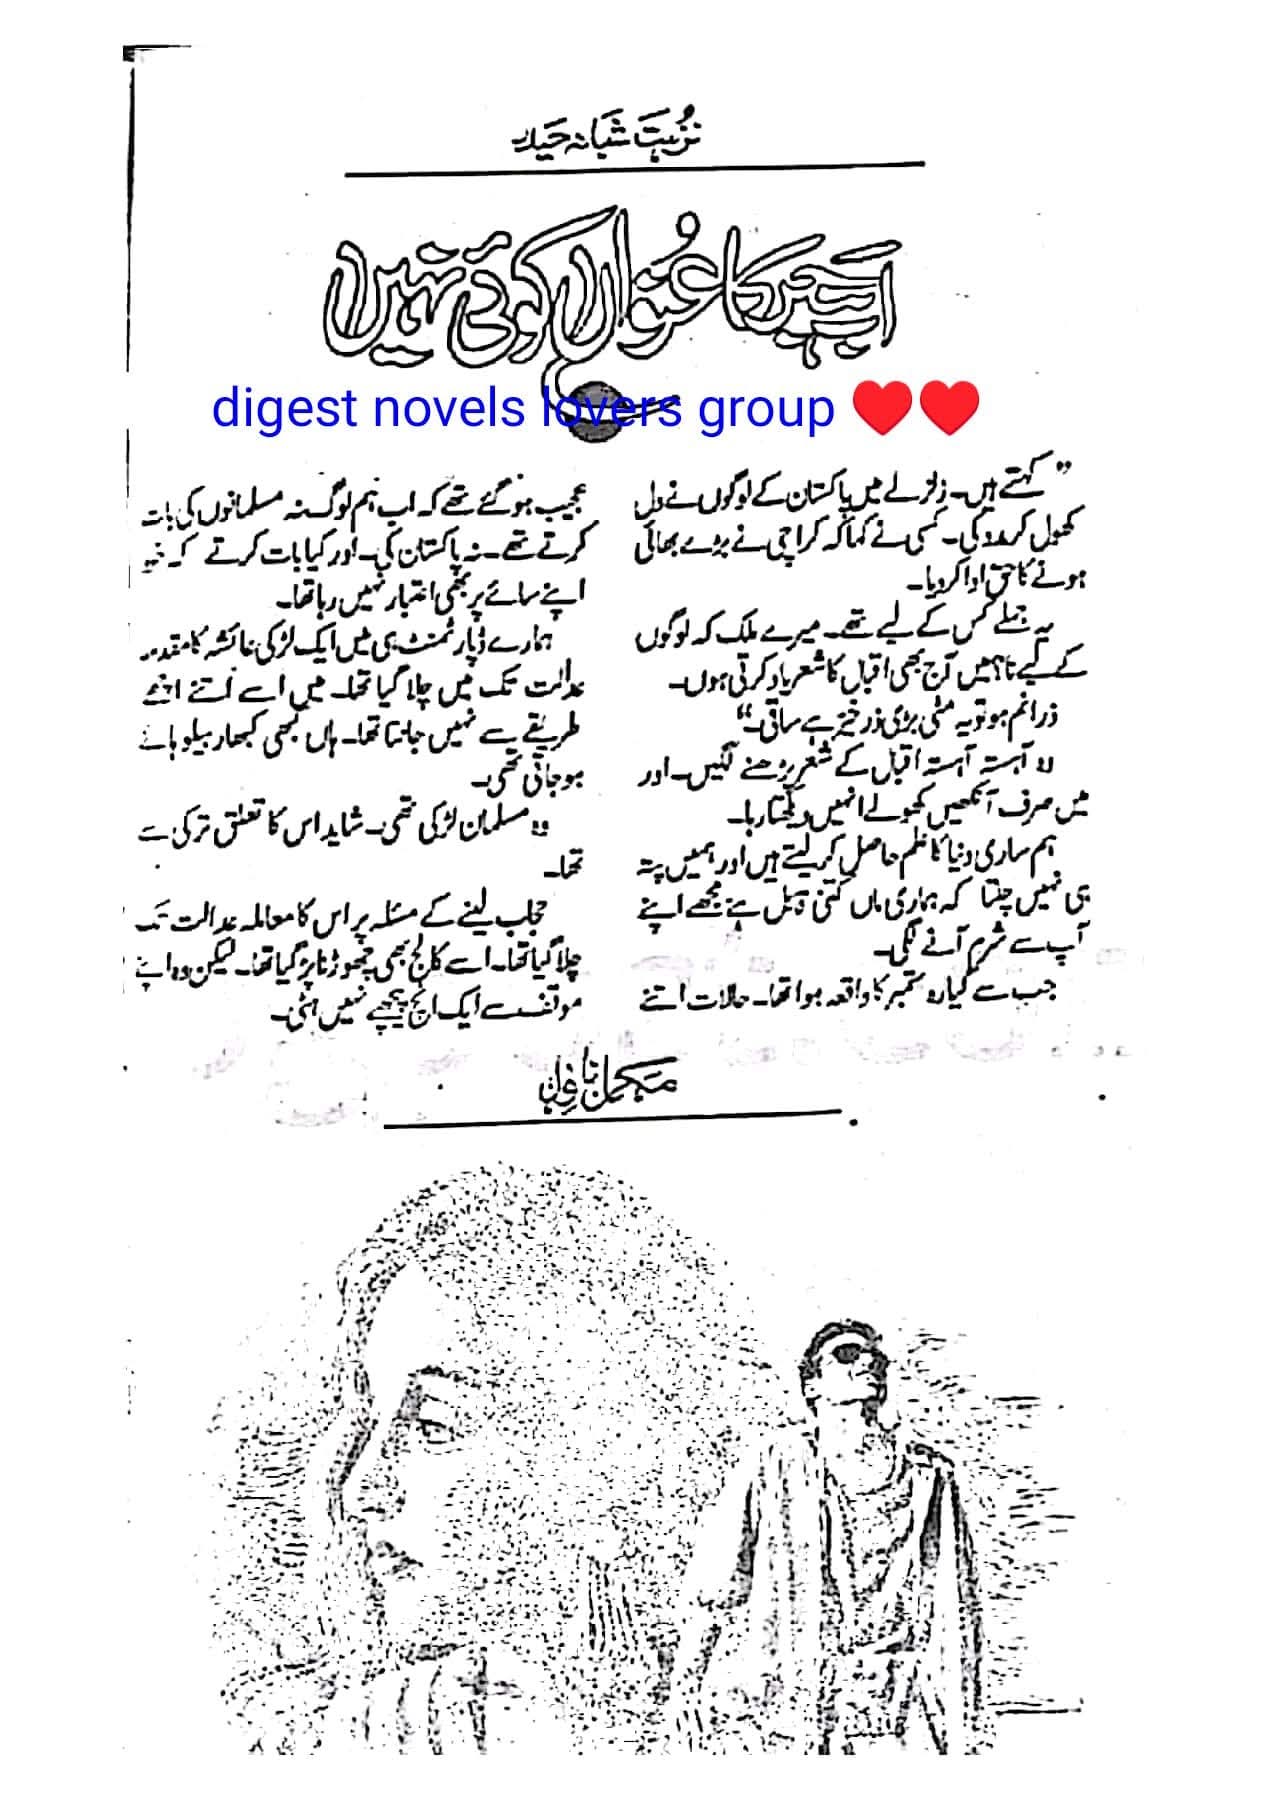 نزہت شبانہ حیدر
ایسے ہیں کا عنوان کوئی نہیں
digest novels lovers group ❤️❤️
”کہتے ہیں۔ زلزلے میں پاکستان کے لوگوں نے دل
کھول کر مدد کی۔ کسی نے کہا کہ کراچی نے بڑے بھائی
ہونے کا حق ادا کر دیا۔
یہ جملے کس کے لیے تھے۔ میرے ملک کہ لوگوں
کے لیے نا؟ میں آج بھی اقبال کا شعر یاد کرتی ہوں۔
ذرا نم ہو تو یہ مٹی بڑی زرخیز ہے ساقی۔“
وہ آہستہ آہستہ اقبال کے شعر پڑھنے لگیں۔ اور
میں صرف آنکھیں کھولے انہیں دیکھتا رہا۔
ہم ساری دنیا کا علم حاصل کر لیتے ہیں اور ہمیں پتہ
ہی نہیں چلتا کہ ہماری ماں کتنی قابل ہے؟ مجھے اپنے
آپ سے شرم آنے لگی۔
جب سے گیارہ ستمبر کا واقعہ ہوا تھا۔ حالات اتنے
عجیب ہو گئے تھے کہ اب ہم لوگ نہ مسلمانوں کی بات
کرتے تھے۔ نہ پاکستان کی۔ اور کیا بات کرتے کہ خود
اپنے سائے پر بھی اعتبار نہیں رہا تھا۔
ہمارے ڈپارٹمنٹ ہی میں ایک لڑکی عائشہ کا مقدمہ
عدالت تک میں چلا گیا تھا۔ میں اسے اتنے اچھے
طریقے سے نہیں جانتا تھا۔ ہاں کبھی کبھار ہیلو ہائے
ہو جاتی تھی۔
وہ مسلمان لڑکی تھی۔ شاید اس کا تعلق ترکی سے
تھا۔
حجاب لینے کے مسئلہ پر اس کا معاملہ عدالت تک
چلا گیا تھا۔ اسے کالج بھی چھوڑنا پڑ گیا تھا۔ لیکن وہ اپنے
موقف سے ایک انچ پیچھے نہیں ہٹی۔
مکمل ناول